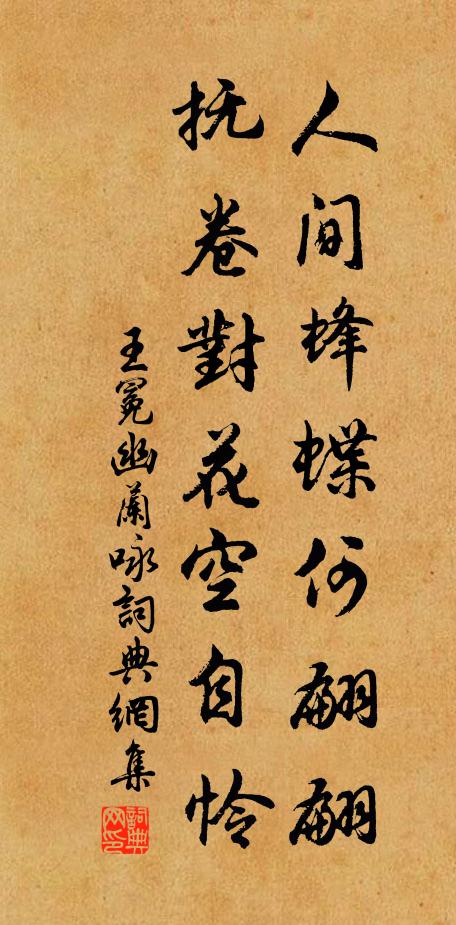 人间蜂蝶何翩翩
抚卷對花空自怜
王冕幽蘭咏詞典網集
詞典网印